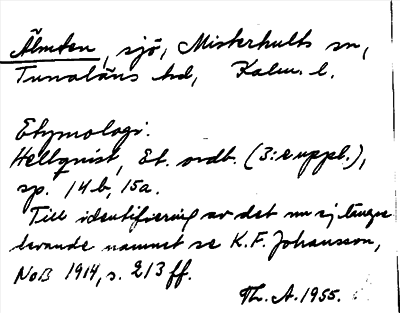 Älmten, sjö, Misterhults sn,
Tunaläns hd, Kalm. l.
Etymologi:
Hellquist, Et. ordb. (3:e uppl.),
sp. 14b, 15a.
Till identifiering av det nu ej längre
levande namnet se K.F. Johansson,
NoB 1914, s. 213 ff.
Th. A. 1955.